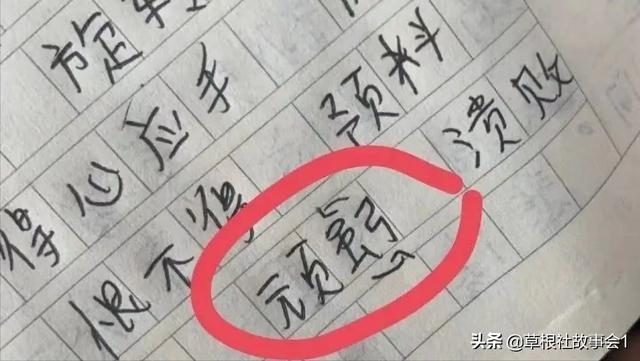 旋
得心应手
恨不得 预料
顽 溃败
头条 @草根社故事会1